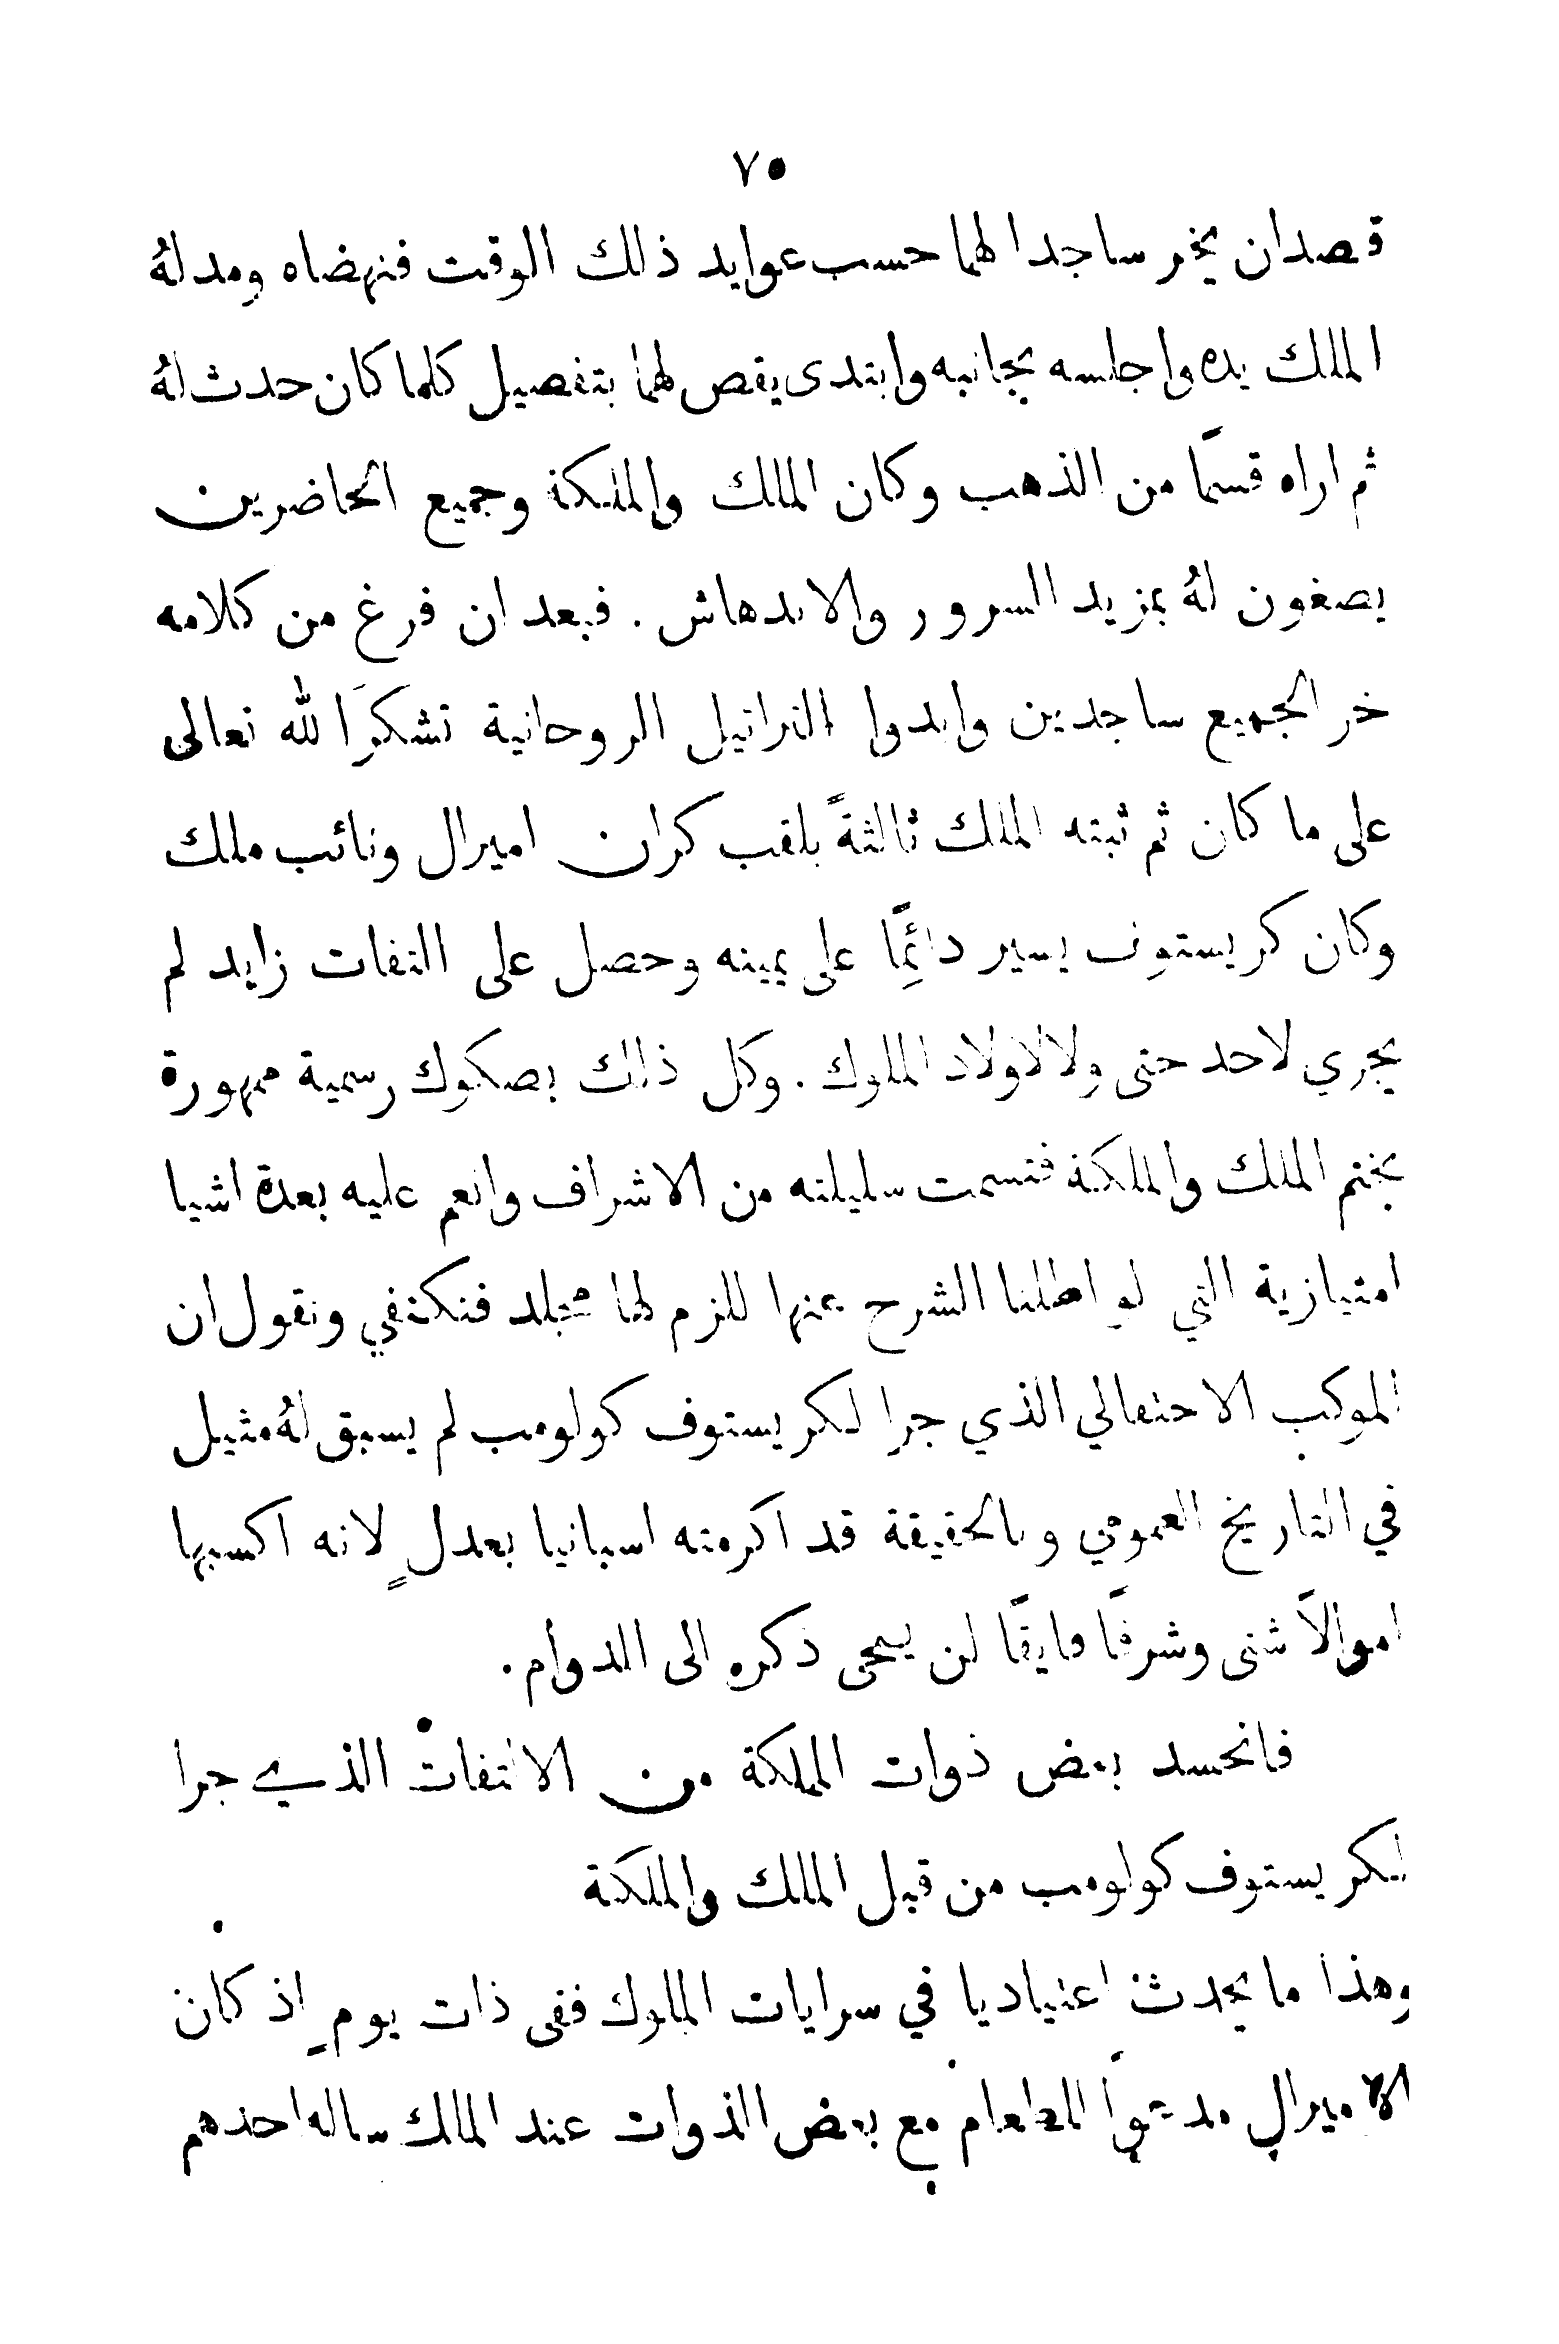 ٧٥
قصد ان يخر ساجدا لهما حسب عوايد ذلك الوقت فنهضاه ومد لهُ
الملك يده واجلسه بجانبه وابتدى يقص لهما بتفصيل كلما كان حدث لهُ
ثم اراه قسمًا من الذهب وكان الملك والملكة وجميع الحاضرين
يصغون لهُ بمزيد السرور والاندهاش . فبعد ان فرغ من كلامه
خر الجميع ساجدين وابدوا التراتيل الروحانية تشكرًا لله تعالى
على ما كان ثم ثبته الملك ثالثةً بلقب كران اميرال ونائب ملك
وكان كريستوف يسير دائمًا على يمينه وحصل على التفات زايد لم
يجري لاحد حتى ولا لاولاد الملوك . وكل ذلك بصكوك رسمية ممهورة
بختم الملك والملكة فتسمت سليلته من الاشراف وانعم عليه بعدة اشيا
امتيازية التي لو اطلنا الشرح عنها للزم لها مجلد فنكتفي ونقول ان
الموكب الاحتفالي الذي جرا لكريستوف كولومب لم يسبق لهُ مثيل
في التاريخ العمومي وبالحقيقة قد اكرمته اسبانيا بعدلٍ لانه اكسبها
اموالاً شتى وشرفًا فايقًا لن يمحى ذكره الى الدوام .
فانحسد بعض ذوات المملكة من الالتفات الذي جرا
لكريستوف كولومب من قبل الملك والملكة
وهذا ما يحدث اعتياديا في سرايات الملوك ففى ذات يومٍ اذ كان
الاميرال مدعوًا للطعام مع بعض الذوات عند الملك ساله احدهم